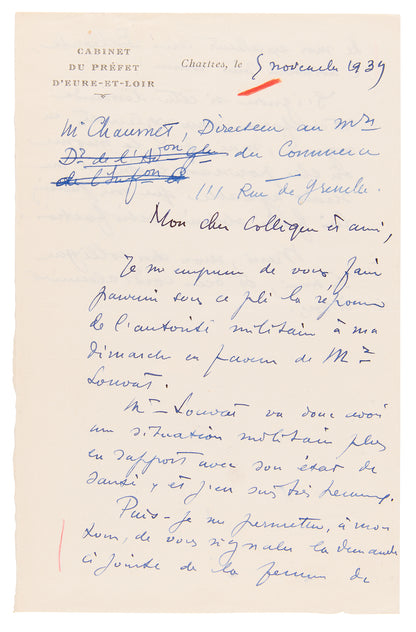 CABINET
DU PRÉFET
D'EURE-ET-LOIR
Chartres, le 5 novembre 1939
Mr Chaumet, Directeur au Min
Dr de l'Adon Gle du Commerce
de l'Infon
111 Rue de Grenelle.
Mon cher Collègue et ami,
Je m'empresse de vous faire
parvenir sous ce pli la réponse
de l'autorité militaire à ma
démarche en faveur de Mr
Louvat.
Mr Louvat va donc avoir
une situation militaire plus
en rapport avec son état de
santé, et j'en suis très heureux.
Puis-je me permettre, à mon
tour, de vous signaler la demande
ci jointe de la femme de